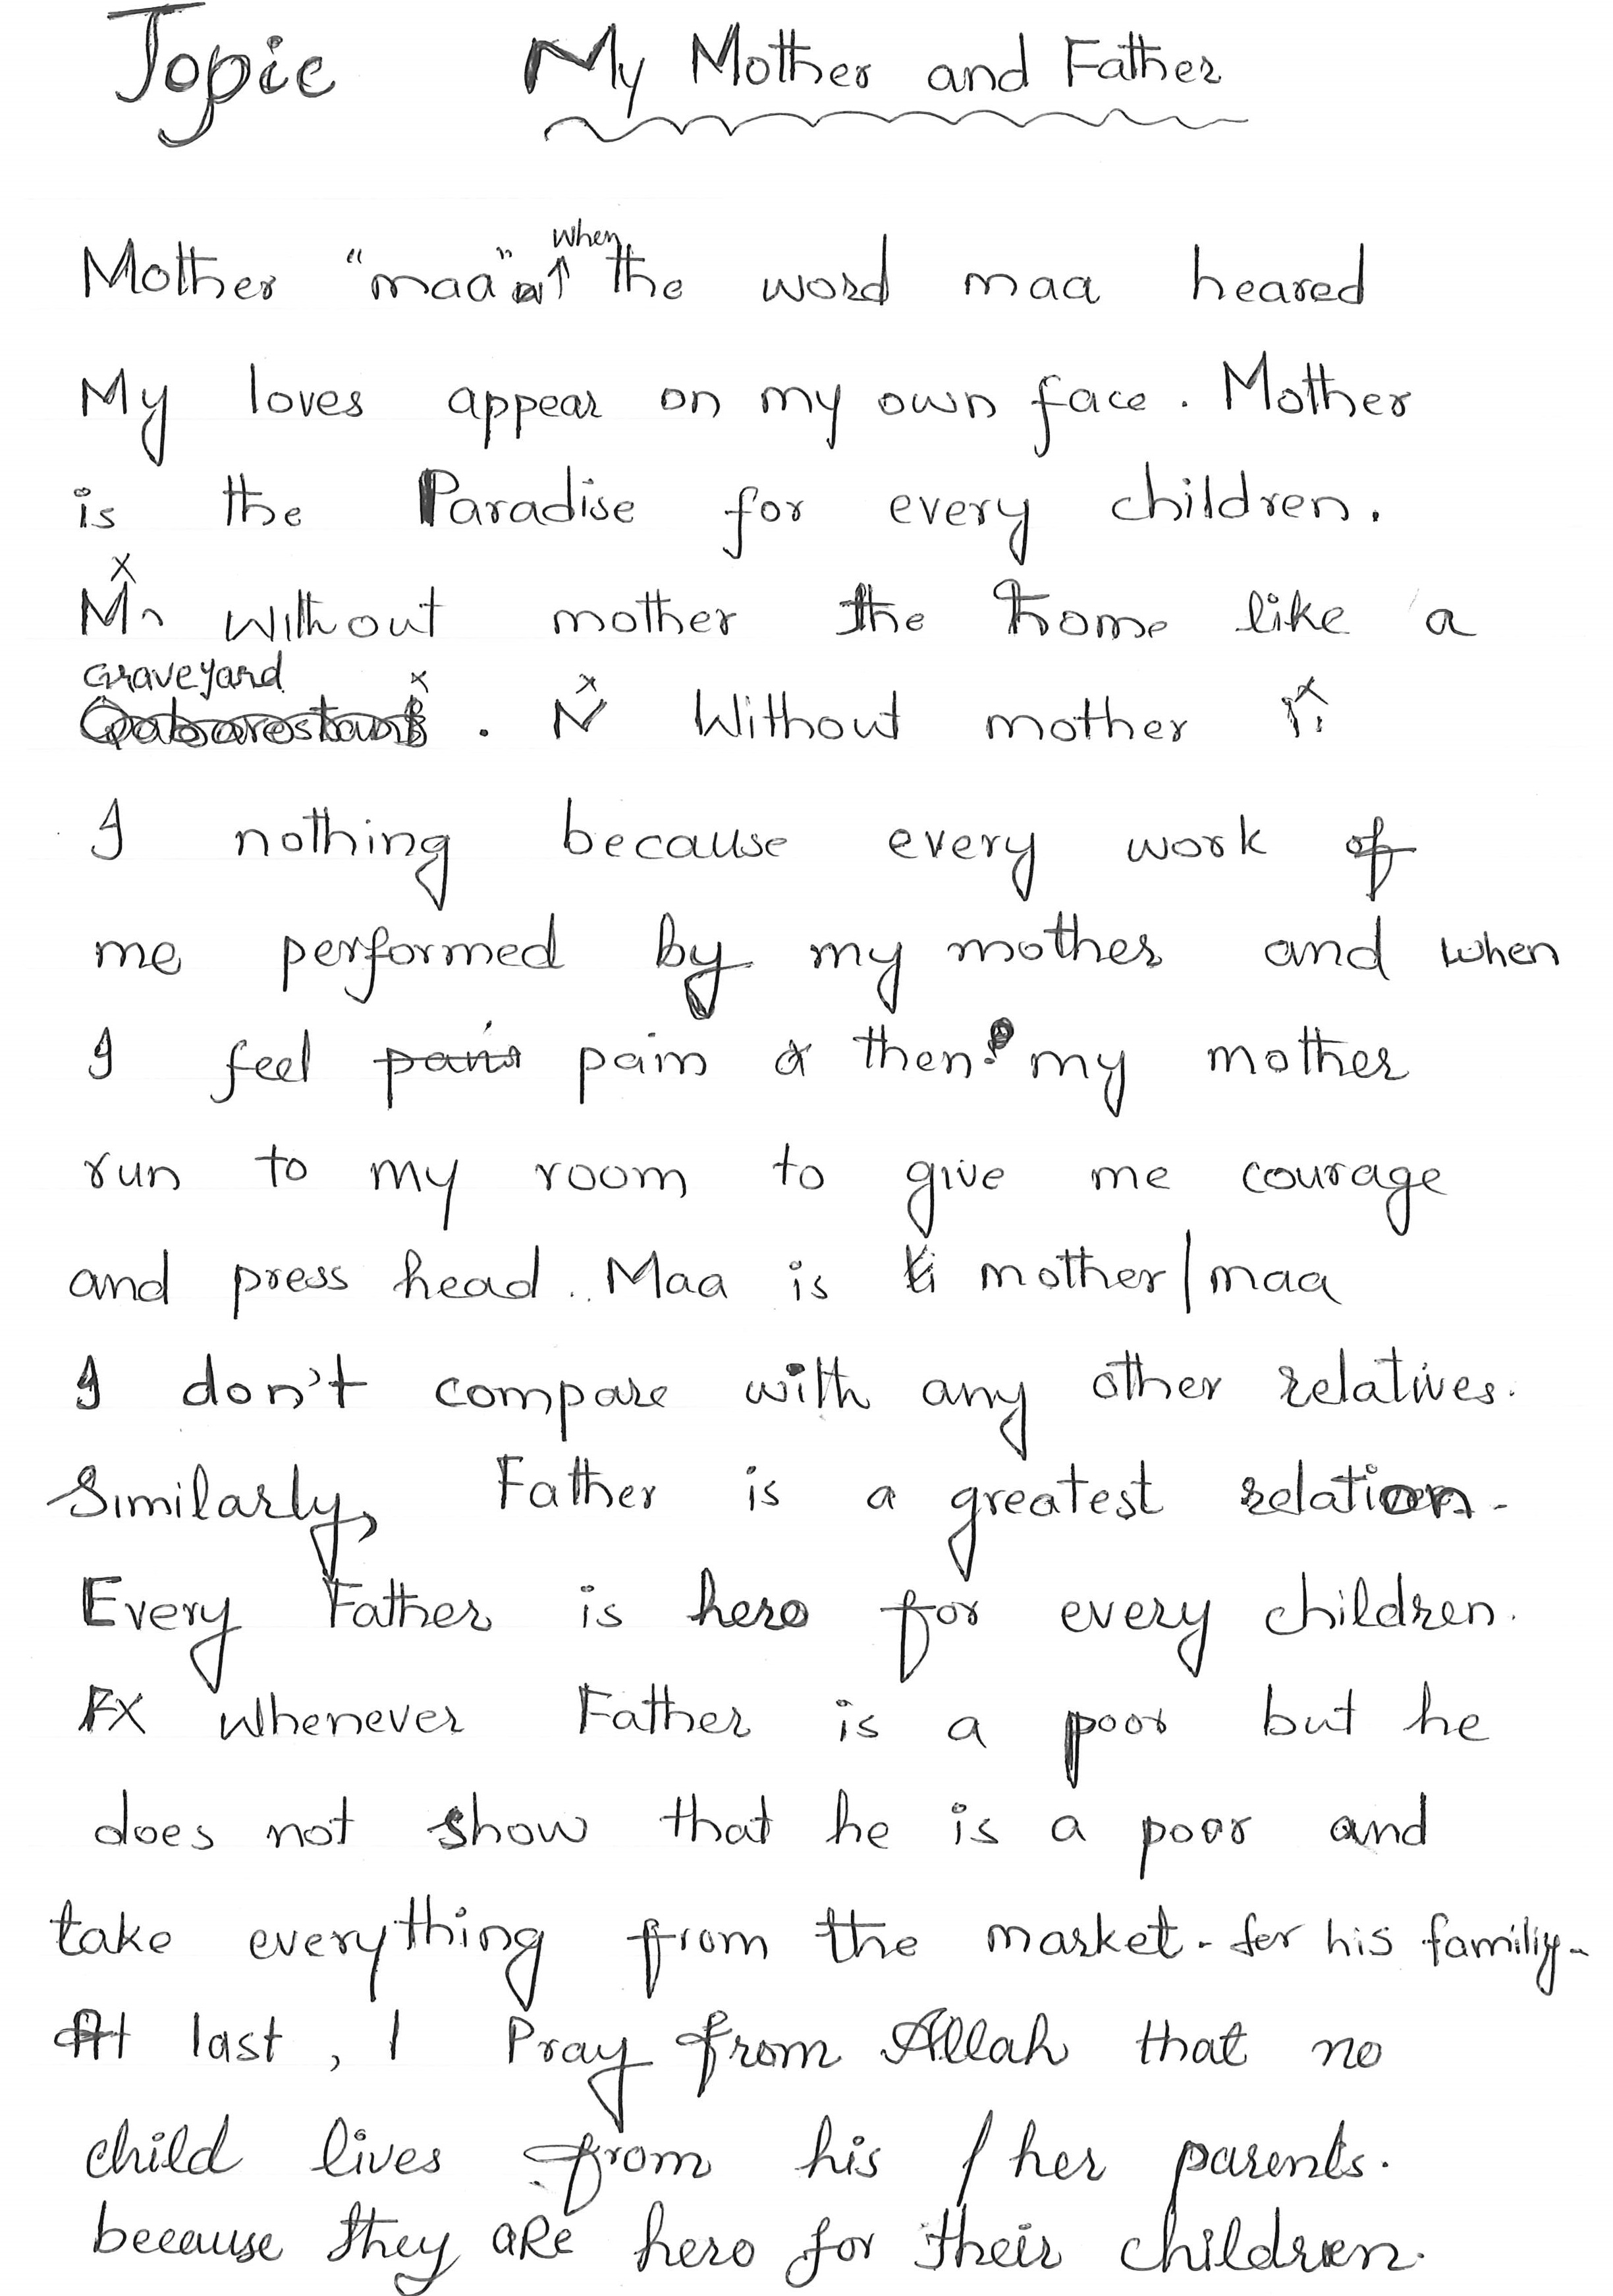 Topic My Mother and Father
Mother "maa" when the word maa heared
My loves appear on my own face. Mother
is the Paradise for every children.
Without mother the home like a
graveyard . Without mother
I nothing because every work of
me performed by my mother and when
I feel pain then my mother
run to my room to give me courage
and press head.. Maa is mother/maa
I don't compare with any other relatives.
Similarly, Father is a greatest relation.
Every Father is hero for every children.
Whenever Father is a poor but he
does not show that he is a poor and
take everything from the market. for his familiy.
At last, I Pray from Allah that no
child lives from his / her parents.
because they are hero for their children.